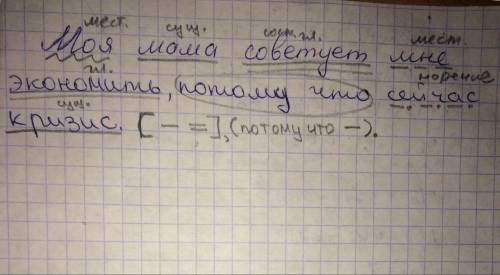 мест. сущ. гл. мест.
Моя мама советует мне
гл. наречие
экономить, потому что сейчас
сущ.
кризис. [– =], (потому что –).